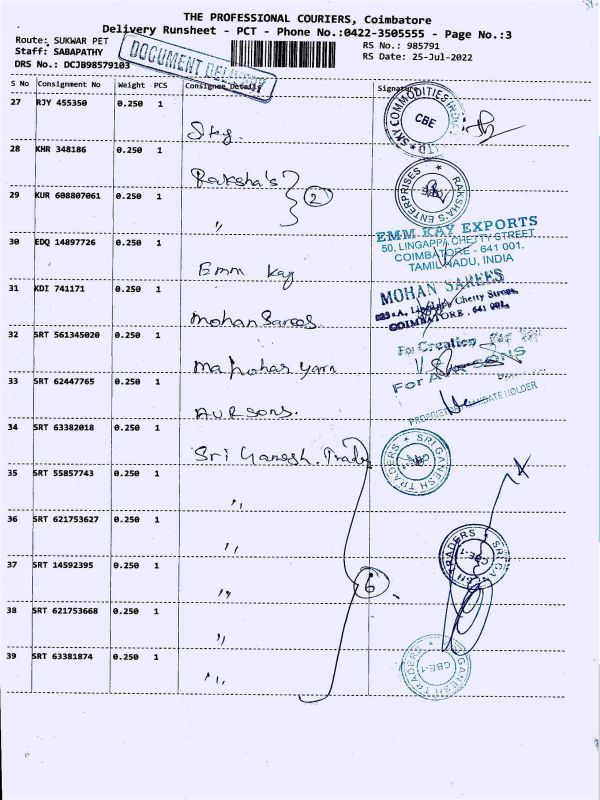 THE PROFESSIONAL COURIERS, Coimbatore
Delivery Runsheet - PCT - Phone No.:0422-3505555 - Page No.:3
Route: SUKWAR PET
Staff: SABAPATHY
DRS No.: DCJB98579103
RS No.: 985791
RS Date: 25-Jul-2022
DOCUMENT DELIVERY
S No Consignment No Weight PCS Consignee Details Signature
27 RJY 455350 0.250 1
Sky.
SKY COMMODITIES INDIA LTD
CBE
28 KHR 348186 0.250 1
Raksha's
2
RAKSHA'S ENTERPRISES
29 KUR 608807061 0.250 1
"
30 EDQ 14897726 0.250 1
Emm Kay
EMM KAY EXPORTS
50, LINGAPPA CHETTY STREET
COIMBATORE - 641 001.
TAMIL NADU, INDIA
31 KDI 741171 0.250 1
Mohan Sarees
MOHAN SAREES
Chetty Street,
COIMBATORE. 641 001.
32 SRT 561345020 0.250 1
Manohar yarn
For Creation
33 SRT 62447765 0.250 1
AUR SONS.
For A SONS
34 SRT 63382018 0.250 1
Sri Ganesh. Traders
SRI GANESH TRADERS
35 SRT 55857743 0.250 1
"
36 SRT 621753627 0.250 1
"
SRI GANESH TRADERS
CBE-1
37 SRT 14592395 0.250 1
"
6
38 SRT 621753668 0.250 1
"
39 SRT 63381874 0.250 1
"
SRI GANESH TRADERS
CBE-1